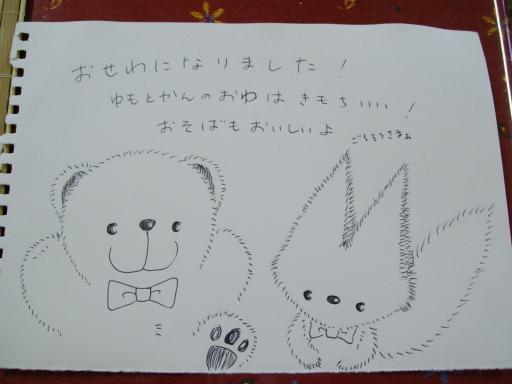 おせわになりました！
ゆもとかんのおゆは きもちいいい！
おそばもおいしいよ
ごちそうさまぁ